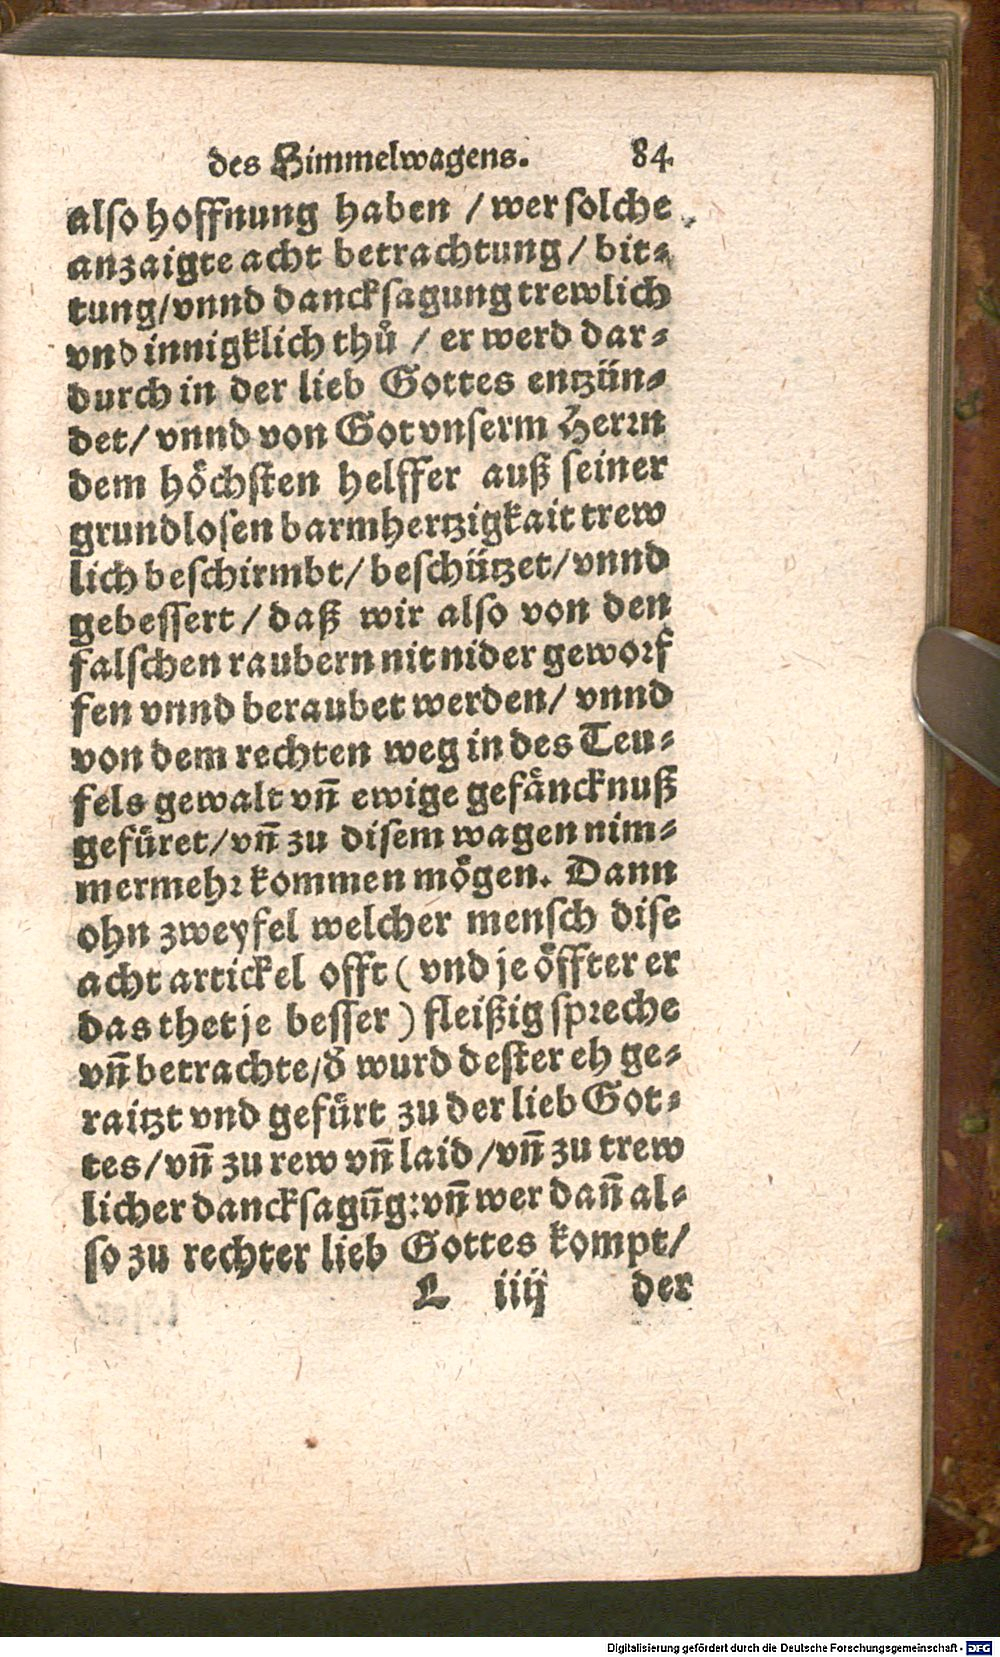 des Himmelwagens. 84
also hoffnung haben / wer solche
anzaigte acht betrachtung / bit⸗
tung/vnnd dancksagung trewlich
vnd innigklich thuͦ / er werd dar⸗
durch in der lieb Gottes entzün⸗
det/ vnnd von Got vnserm Herrn
dem höchsten helffer auß seiner
grundlosen barmhertzigkait trew
lich beschirmbt/ beschützet/ vnnd
gebessert / daß wir also von den
falschen raubern nit nider geworf
fen vnnd beraubet werden/ vnnd
von dem rechten weg in des Teu⸗
fels gewalt vñ ewige gefäncknuß
gefüret/ vñ zu disem wagen nim⸗
mermehr kommen mögen. Dann
ohn zweyfel welcher mensch dise
acht artickel offt ( vnd je öffter er
das thet je besser ) fleißig spreche
vñ betrachte/d̄ wurd dester eh ge⸗
raitzt vnd gefürt zu der lieb Got⸗
tes/ vñ zu rew vñ laid /vñ zu trew
licher dancksagūg: vñ wer dañ al⸗
so zu rechter lieb Gottes kompt/
L iiij der
Digitalisierung gefördert durch die Deutsche Forschungsgemeinschaft - DFG